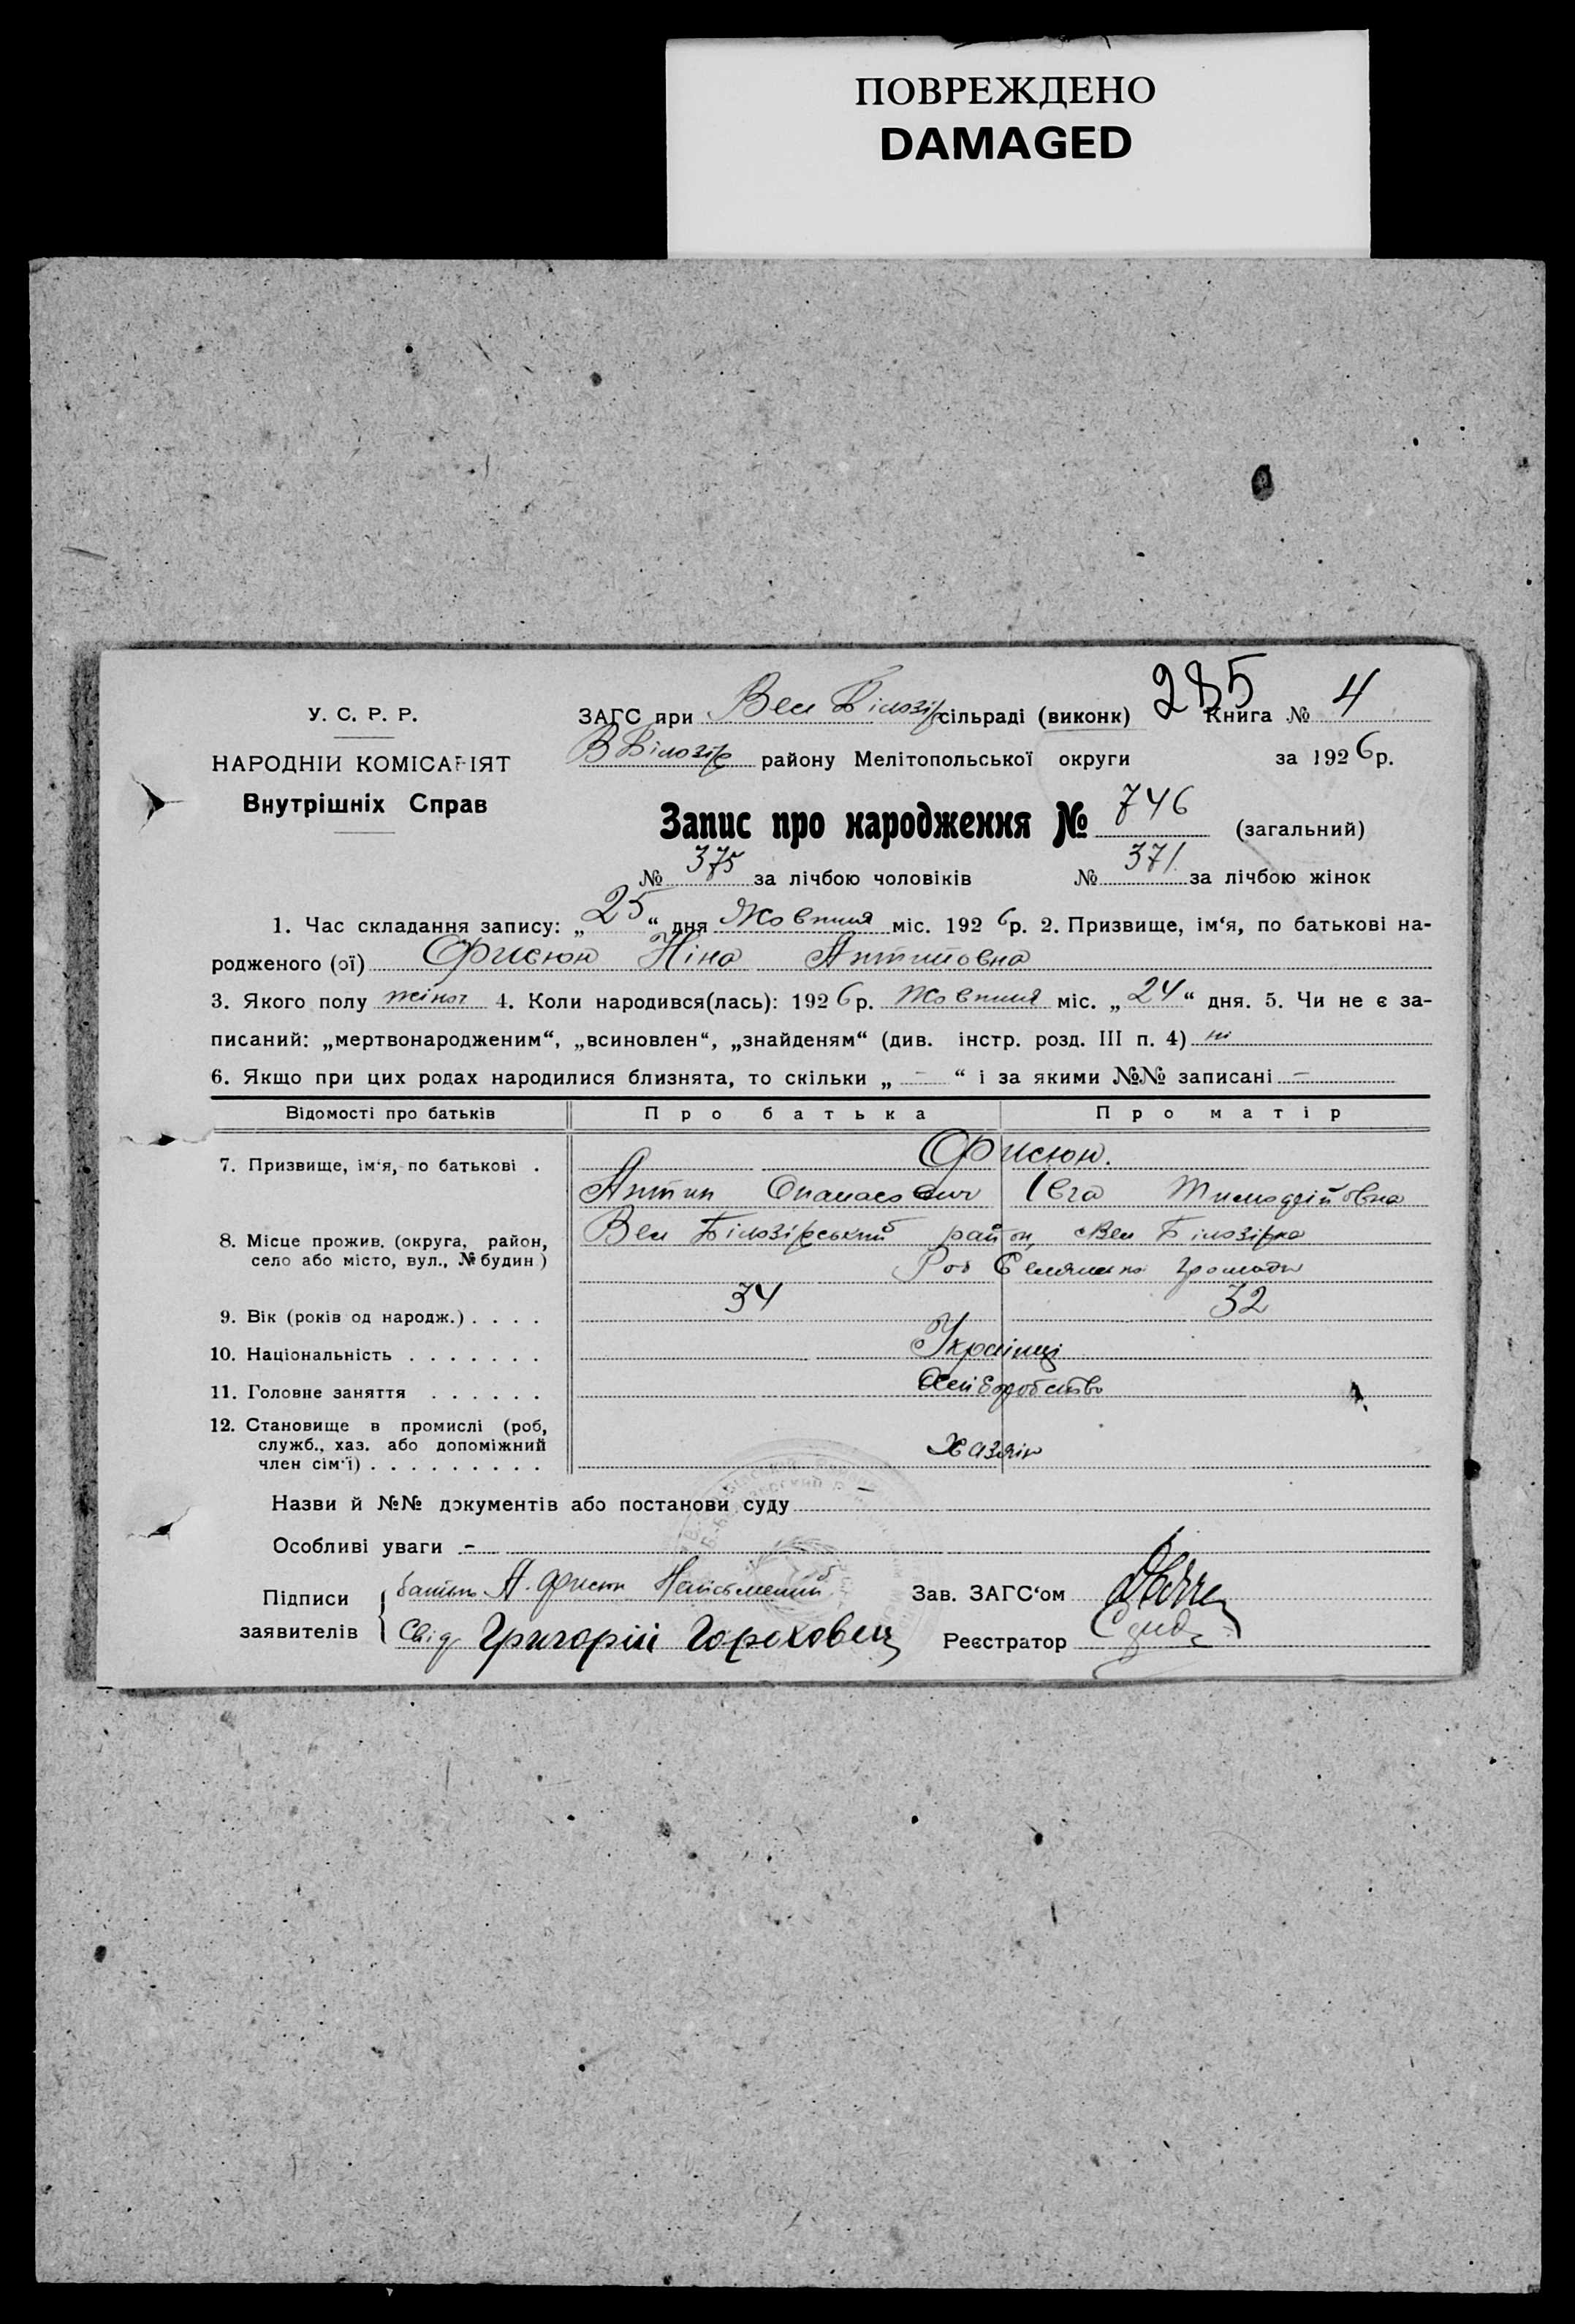 ПОВРЕЖДЕНО
DAMAGED
285
У. С. Р. Р.
ЗАГС при Вел Білозір сільраді (виконк) Книга № 4
НАРОДНІЙ КОМІСАРІЯТ
В Білозір району Мелітопольської округи за 1926 р.
Внутрішніх Справ
Запис про народження № 746 (загальний)
№ 375 за лічбою чоловіків № 371 за лічбою жінок
1. Час складання запису: „25“ дня Жовтня міс. 1926 р. 2. Призвище, ім‘я, по батькові на-
родженого (ої) Фисюн Ніна Антиповна
3. Якого полу жіноч 4. Коли народився(лась): 1926 р. Жовтня міс. „24“ дня. 5. Чи не є за-
писаний: „мертвонародженим“, „всиновлен“, „знайденям“ (див. інстр. розд. III п. 4) ні
6. Якщо при цих родах народилися близнята, то скільки „ - “ і за якими №№ записані -
Відомості про батьків Про батька Про матір
7. Призвище, ім‘я, по батькові . Фисюн.
Антип Опанасович Івга Тимофійовна
8. Місце прожив. (округа, район,
село або місто, вул., № будин)
Вел Білозірський район, Вел Білозірка
громади
9. Вік (років од народж.) . . . . 34 32
10. Національність . . . . . . . Українці
11. Головне заняття . . . . . . Хліборобство
12. Становище в промислі (роб,
служб., хаз. або допоміжний
член сім‘ї) . . . . . . . . . Хазяін
Назви й №№ документів або постанови суду -
Особливі уваги -
Підписи
заявителів
батько А. Фисюн Неписьмений
Свід Григорій Гороховец
Зав. ЗАГС‘ом
Реєстратор